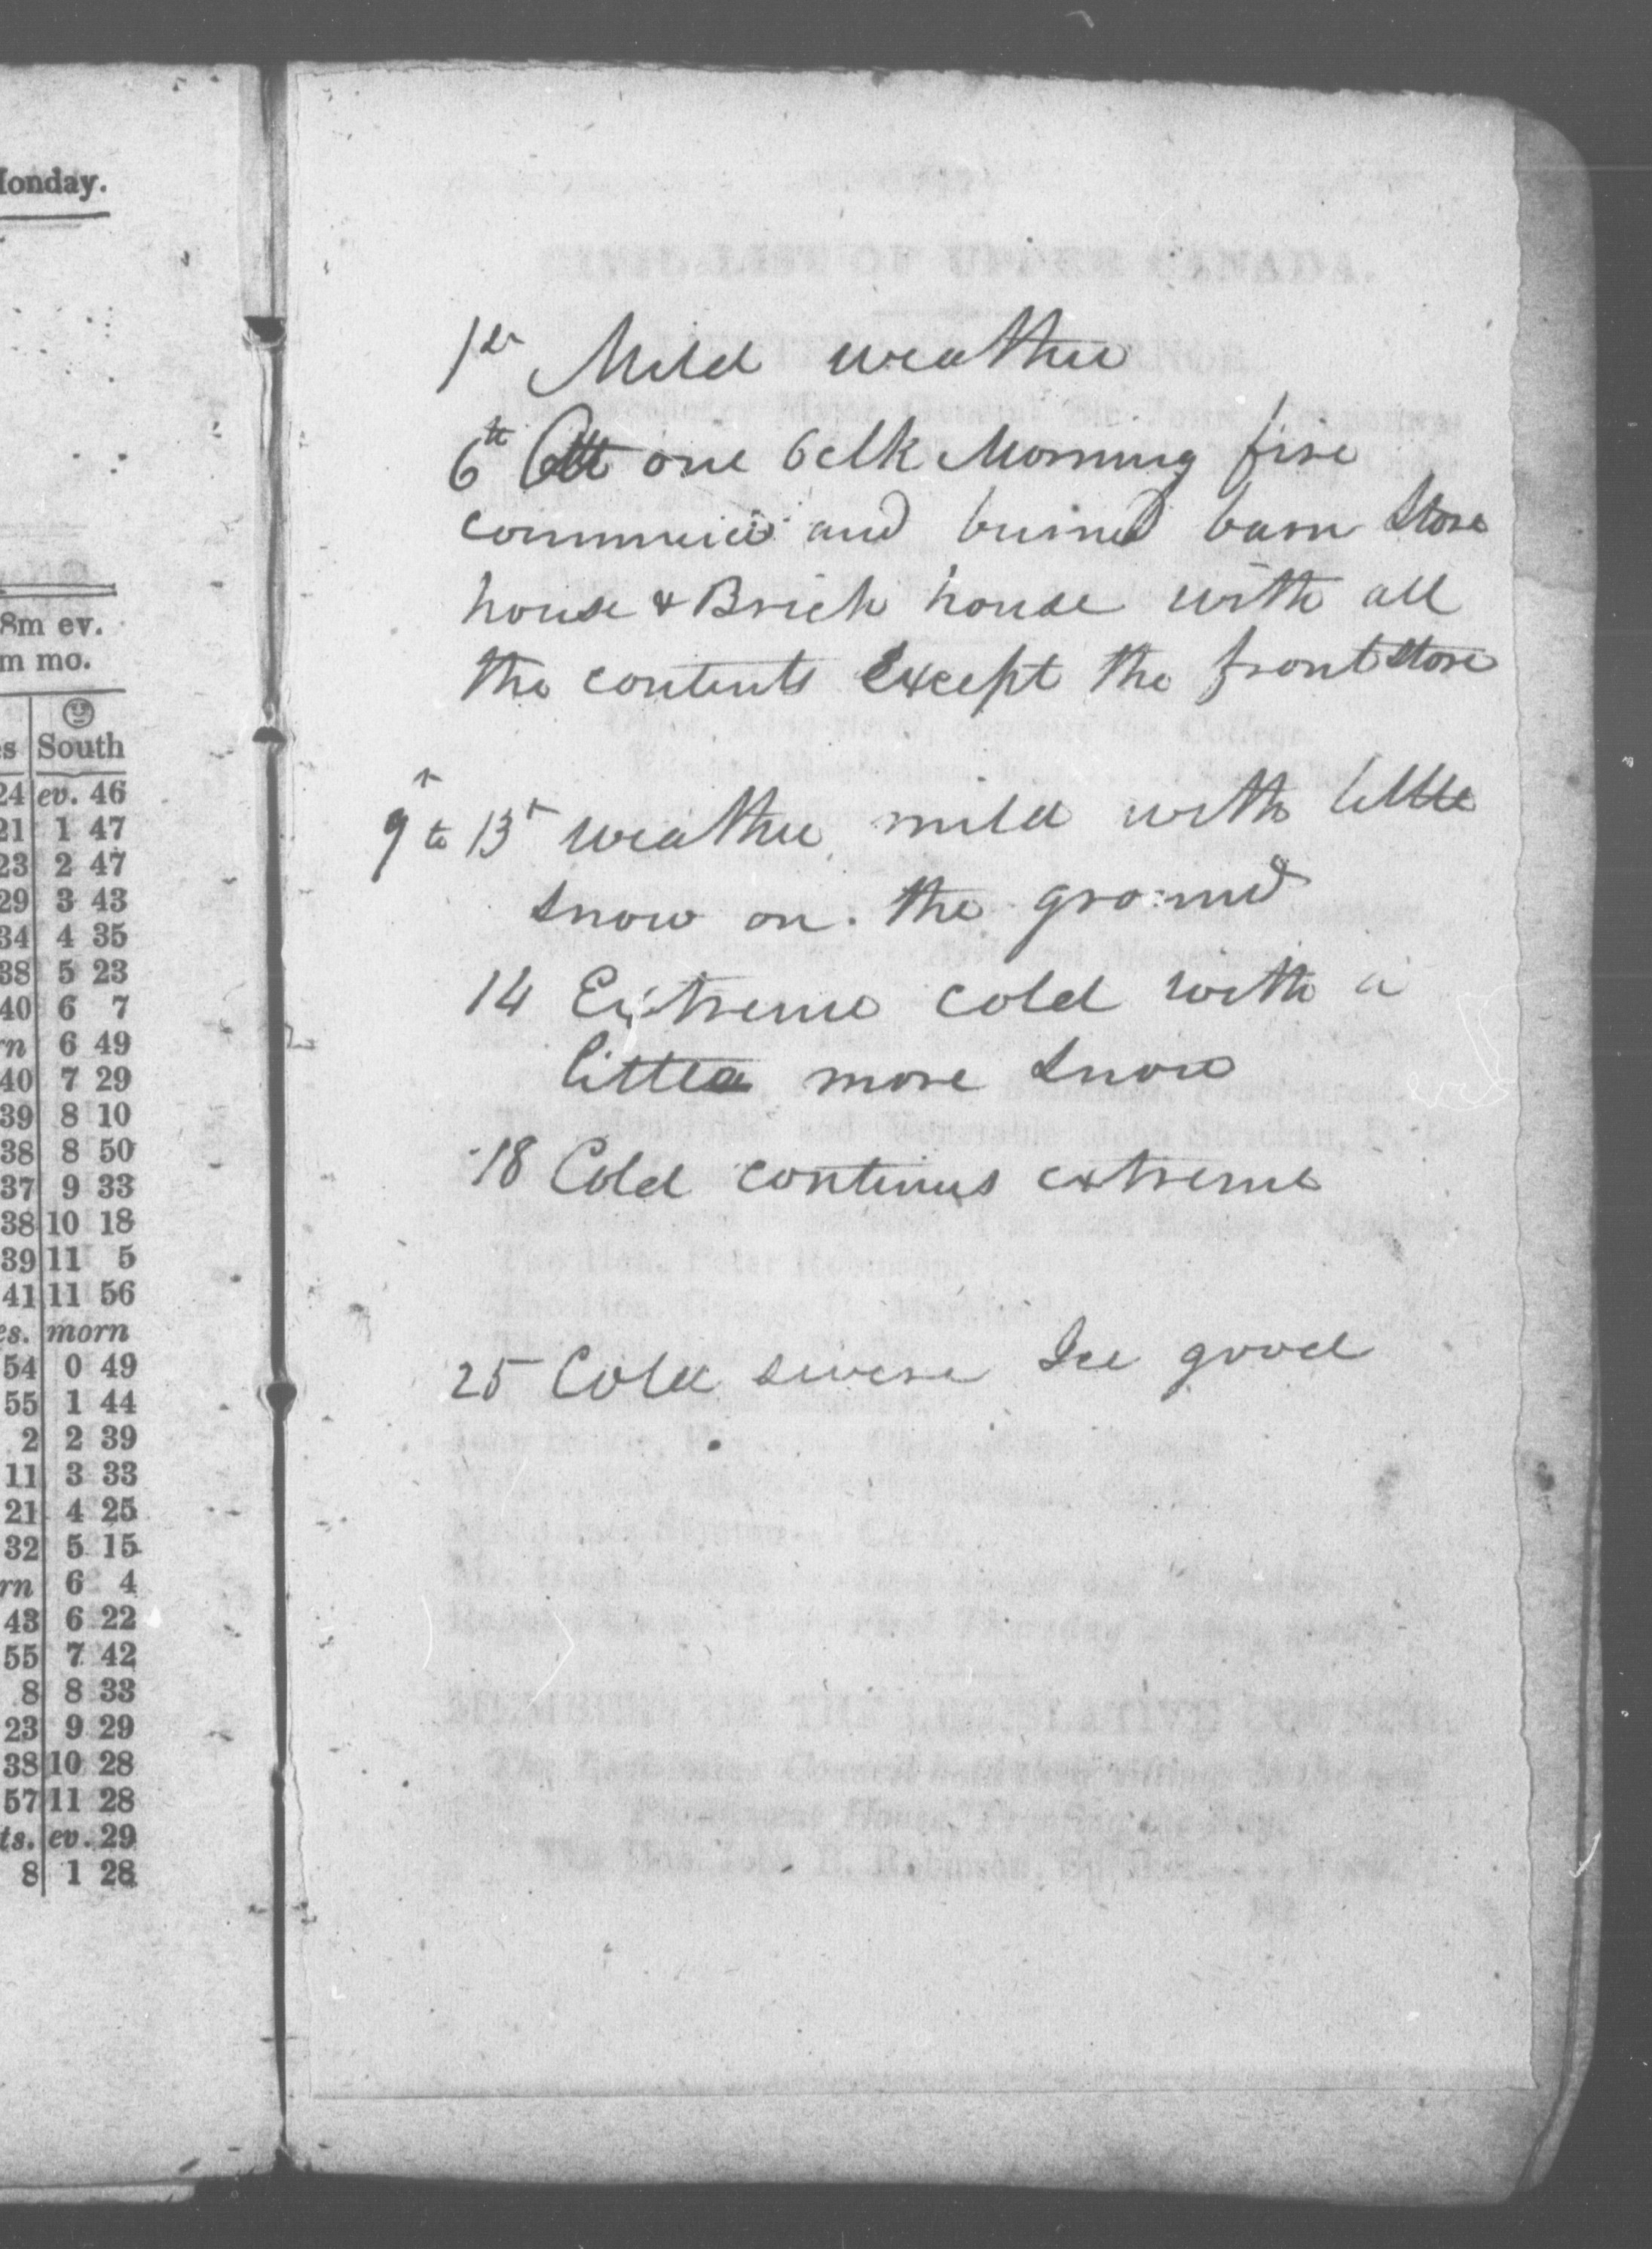 Monday.
8m ev.
m mo.
es South
24 ev. 46
21 1 47
23 2 47
29 3 43
34 4 35
38 5 23
40 6 7
rn 6 49
40 7 29
39 8 10
38 8 50
37 9 33
38 10 18
39 11 5
41 11 56
es. morn
54 0 49
55 1 44
2 2 39
11 3 33
21 4 25
32 5 15
rn 6 4
43 6 22
55 7 42
8 8 33
23 9 29
38 10 28
57 11 28
ts. ev. 29
8 1 28
1st Mild weather
6th Att one Oclk Morning fire
commencd and burned barn Store
house & Brick house with all
the contents Except the front store
9 to 13t weather mild with little
snow on the ground
14 Extreme cold with a
little more snow
18 Cold continues extreme
25 Cold severe Ice good